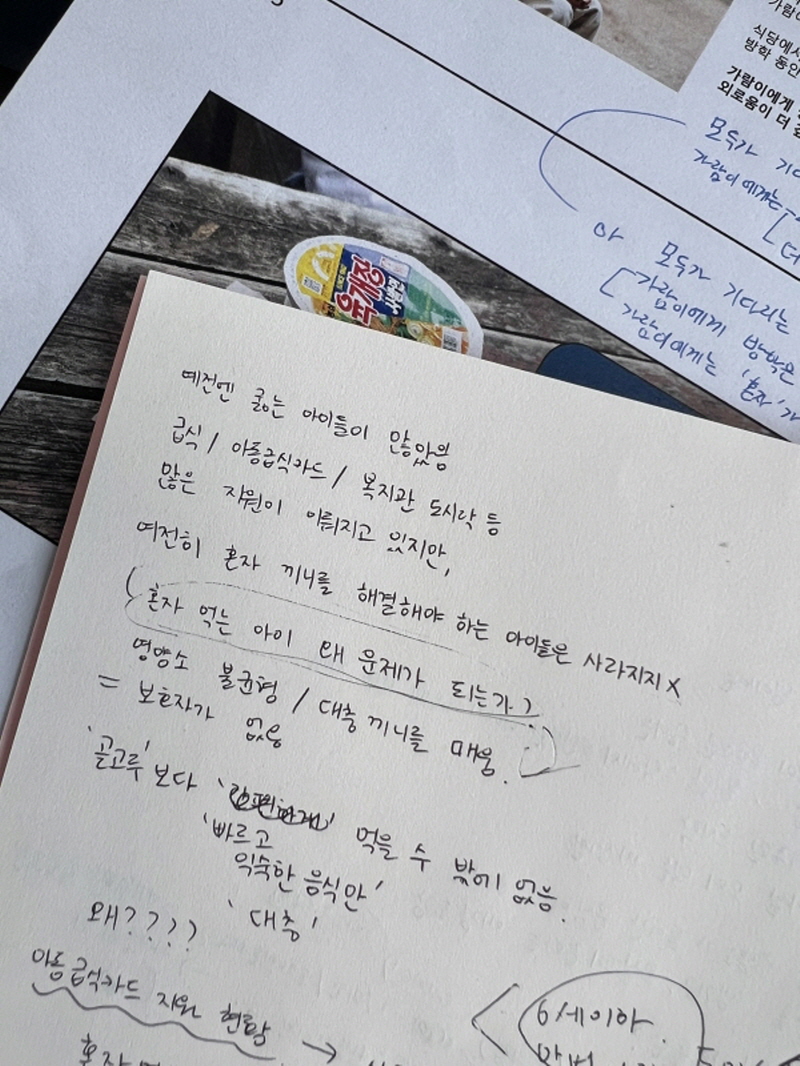 가람이
식당에서
방학 동안
가람이에게
외로움이 더
모두가 기다
가람이에게는
더
아 모두가 기다리는
가람이에게 방학은
가람이에게는 '혼자'가
육개장
사발면
예전엔 굶는 아이들이 많았음
급식 / 아동급식카드 / 복지관 도시락 등
많은 지원이 이뤄지고 있지만,
여전히 혼자 끼니를 해결해야 하는 아이들은 사라지지 X
(혼자 먹는 아이 왜 문제가 되는가?)
영양소 불균형 / 대충 끼니를 매움.
= 보호자가 없음
'골고루' 보다 먹을 수 밖에 없음.
'빠르고
익숙한 음식만'
'대충'
왜????
아동급식카드 지원 현황 →
6세이하
혼자